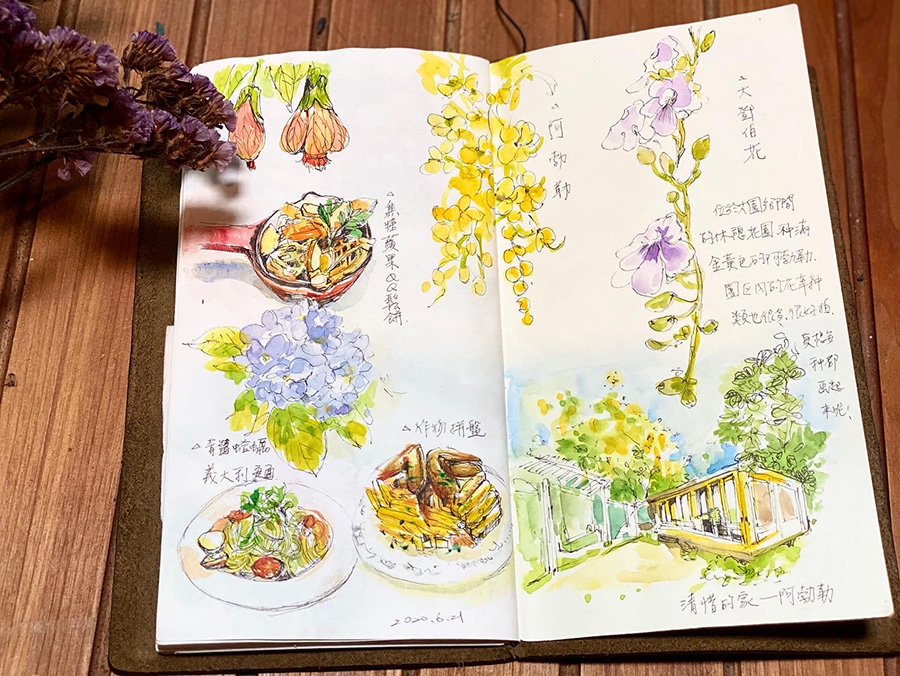 △焦糖蘋果QQ鬆餅.
△青醬蛤蠣
義大利麵
△炸物拼盤
2020.6.21
△阿勃勒
△大鄧伯花
位於大園鄉間
的休憩花園.種滿
金黃色的阿勃勒.
園區內的花草種
類也很多、很好拍,
真想每
種都
畫起
來呢!
清惜的家—阿勃勒